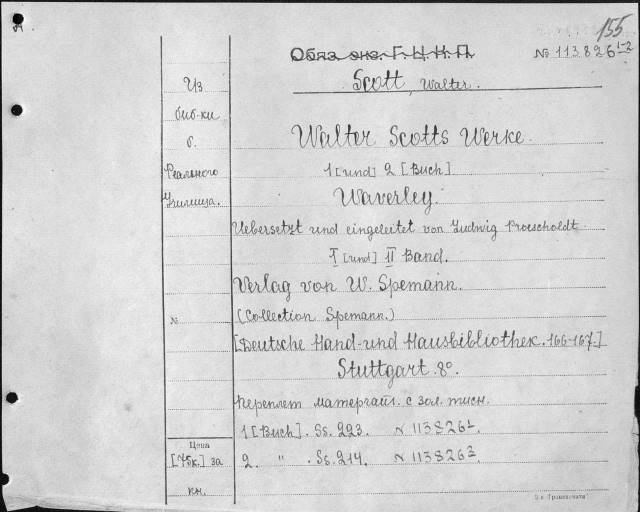 155
Обяз. экз. Г.Ц.К.П.
№ 113826 1-2
Scott, Walter.
Из
биб-ки
б.
Реального
Училища.
Walter Scotts Werke
1 [und] 2 [Buch]
Waverley.
Uebersetzt und eingeleitet von Ludwig Proescholdt
I [und] II Band.
Verlag von W. Spemann.
№
(Collection Spemann.)
[Deutsche Hand-und Hausbibliothek. 166-167.]
Stuttgart. 8°.
переплет матерчат. с зол. тисн.
1 [Buch]. Ss. 223. N 113826 1.
2. " . Ss. 214. N 113826 2.
Цена
[75к.] за
кн.